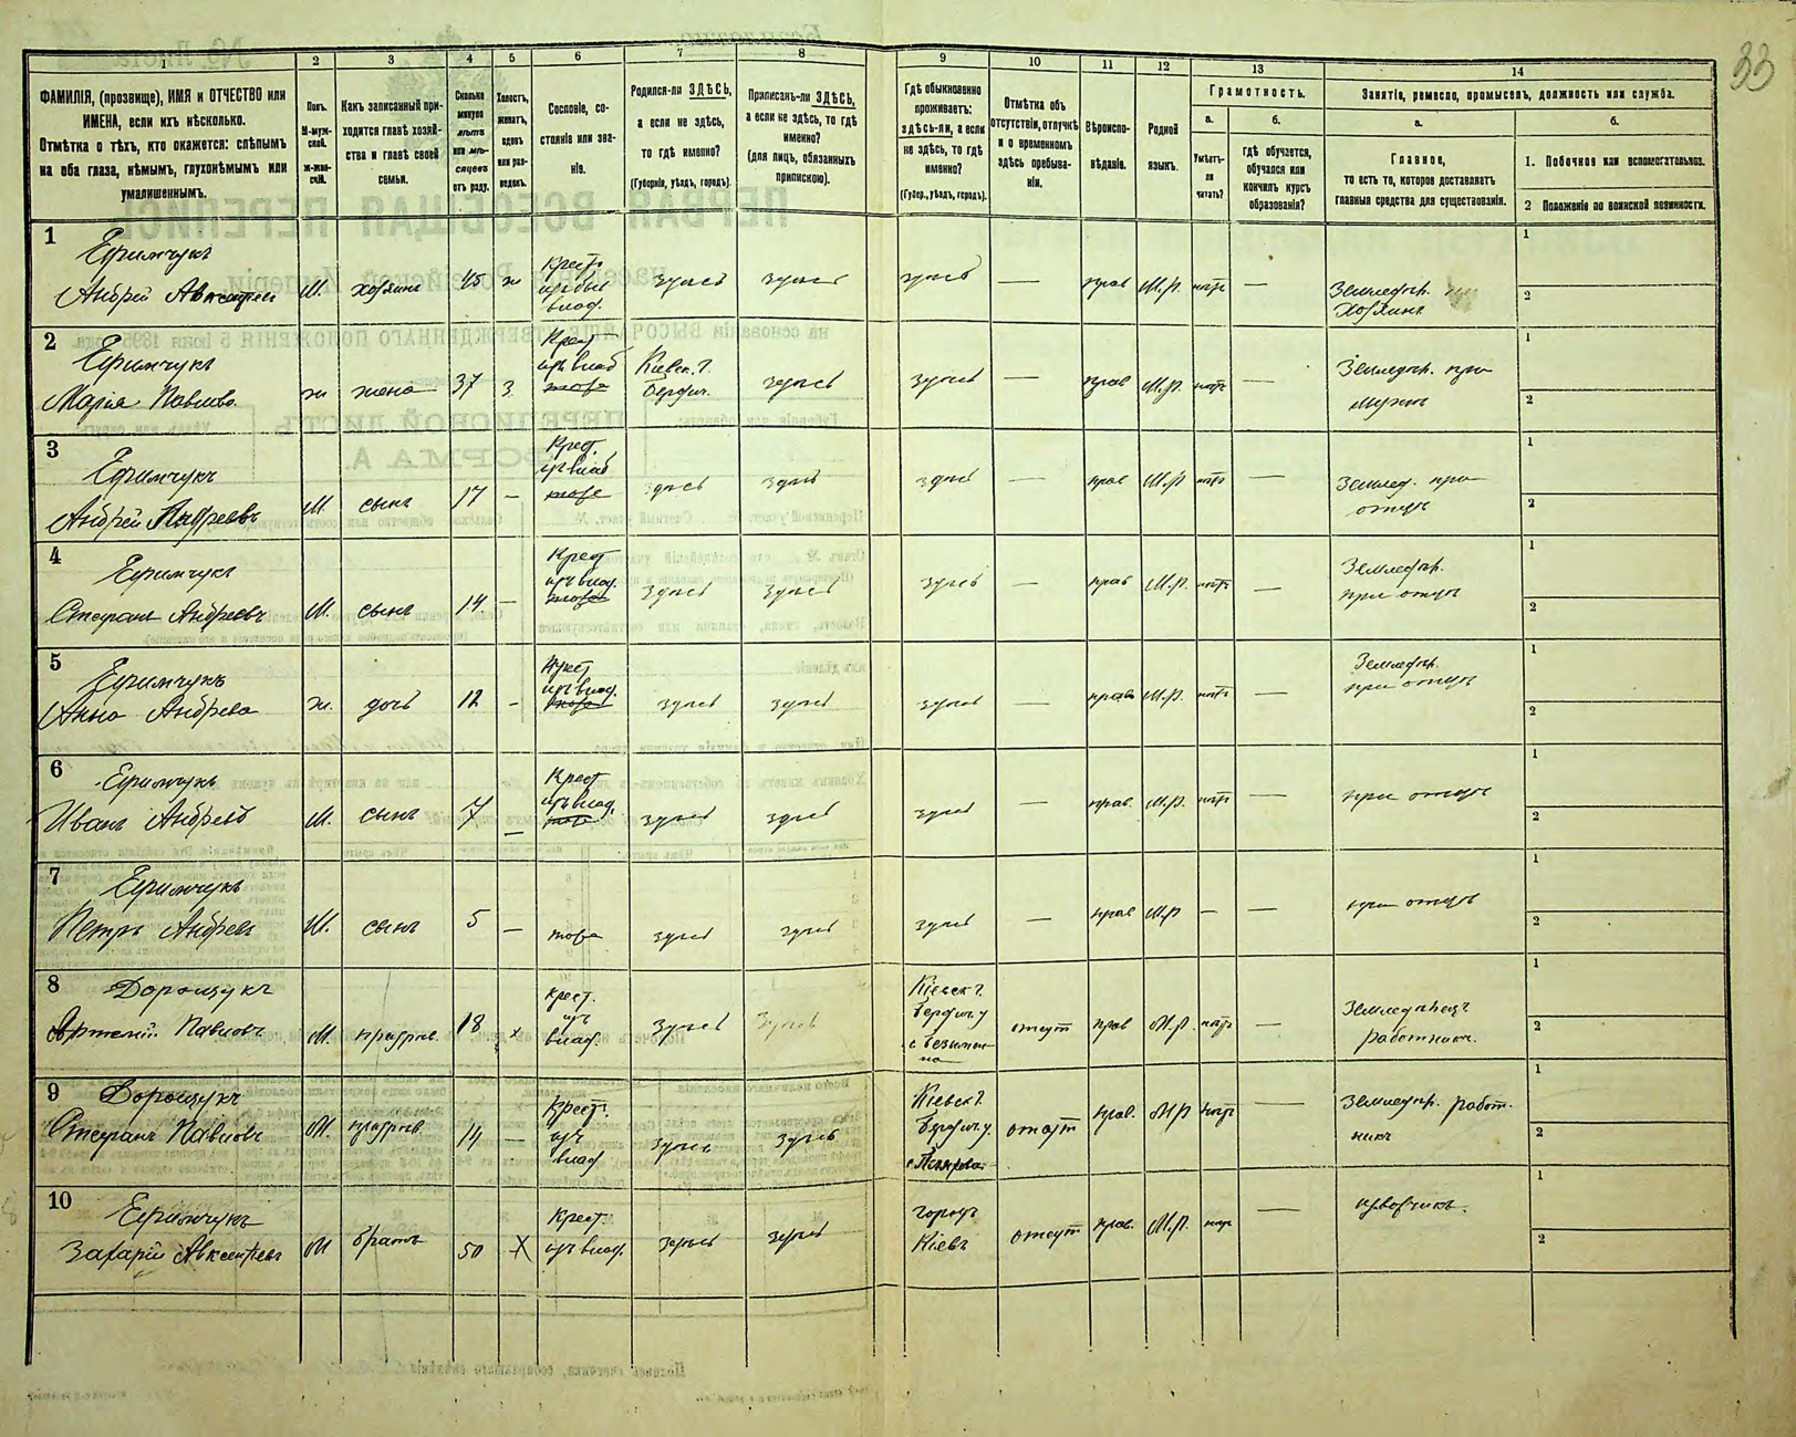 33
1
2
3
4
5
6
7
8
9
10
11
12
13
14
ФАМИЛІЯ, (прозвище), ИМЯ и ОТЧЕСТВО или
ИМЕНА, если ихъ нѣсколько.
Отмѣтка о тѣхъ, кто окажется: слѣпымъ
на оба глаза, нѣмымъ, глухонѣмымъ или
умалишеннымъ.
Полъ.
М-муж-
ской.
ж-жен-
скій.
Какъ записанный при-
ходится главѣ хозяй-
ства и главѣ своей
семьи.
Сколько
минуло
лѣтъ
или мѣ-
сяцевъ
отъ роду.
Холостъ,
женатъ,
вдовъ
или раз-
веденъ.
Сословіе, со-
стояніе или зва-
ніе.
Родился-ли ЗДѢСЬ,
а если не здѣсь,
то гдѣ именно?
(Губернія, уѣздъ, городъ).
Приписанъ-ли ЗДѢСЬ,
а если не здѣсь, то гдѣ
именно?
(для лицъ, обязанныхъ
припискою).
Гдѣ обыкновенно
проживаетъ:
здѣсь-ли, а если
не здѣсь, то гдѣ
именно?
(Губер., уѣздъ, городъ).
Отмѣтка объ
отсутствіи, отлучкѣ
и о временномъ
здѣсь пребыва-
ніи.
Вѣроиспо-
вѣданіе.
Родной
языкъ.
Грамотность.
а.
Умѣетъ-
ли
читать?
б.
гдѣ обучается,
обучался или
кончилъ курсъ
образованія?
Занятіе, ремесло, промыселъ, должность или служба.
а.
Главное,
то есть то, которое доставляетъ
главныя средства для существованія.
б.
1. Побочное или вспомогательное.
2 Положеніе по воинской повинности.
1
Ефимчукъ
Андрей Авксентіевъ
М.
хозяинъ
45
ж
Крест.
изъ быв
влад.
здѣсь
здѣсь
здѣсь
—
прав
М.р.
нѣтъ
—
Земледѣл.
Хозяинъ
1
2
2
Ефимчукъ
Марія Павлова
ж
жена
37
З.
Крест
изъ влад
тоже
Кіевск. г.
Бердич.
здѣсь
здѣсь
—
прав
М.р.
нѣтъ
—
Земледѣл. при
мужѣ
1
2
3
Ефимчукъ
Андрей Андреевъ
М.
сынъ
17
—
Крест.
изъ влад
тоже
здѣсь
здѣсь
здѣсь
—
прав
М.р
нѣтъ
—
Земледѣл. при
отцѣ
1
2
4
Ефимчукъ
Стефанъ Андреевъ
М.
сынъ
14.
—
Крест
изъ влад.
тоже
здѣсь
здѣсь
здѣсь
—
прав
М.р.
нѣтъ
—
Земледѣл.
при отцѣ
1
2
5
Ефимчукъ
Анна Андреева
ж.
дочь
12
-
Крест
изъ влад.
тоже
здѣсь
здѣсь
здѣсь
—
прав
М.р.
нѣтъ
—
Земледѣл.
при отцѣ
1
2
6
Ефимчукъ
Иванъ Андреевъ
М.
сынъ
7
—
Крест
изъ влад.
тоже
здѣсь
здѣсь
здѣсь
—
прав.
М.р.
нѣтъ
—
при отцѣ
1
2
7
Ефимчукъ
Петръ Андреевъ
М.
сынъ
5
—
тоже
здѣсь
здѣсь
здѣсь
—
прав
М.р
—
—
при отцѣ
1
2
8
Дорощукъ
Артемій Павловъ
М.
18
х
крест.
изъ
влад.
здѣсь
здѣсь
Кіевск г.
Бердич. у
отсут
прав
М.р.
нѣтъ
—
Земледѣлецъ
Работникъ.
1
2
9
Дорощукъ
Стефанъ Павловъ
М.
14
—
Крест.
изъ
влад
здѣсь
здѣсь
Кіевск г
Бердич. у.
отсут
прав.
М.р
нѣтъ
—
Земледѣл. работ-
никъ
1
2
10
Ефимчукъ
Захарій Авксентіевъ
М
братъ
50
Х
Крест.
изъ влад.
здѣсь
здѣсь
городъ
Кіевъ
отсут
прав.
М.р.
нѣтъ
—
извозчикъ.
1
2